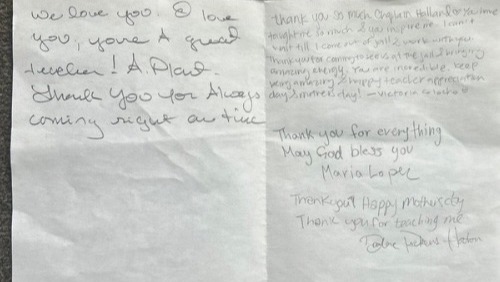 We love you. I love
you, your A great
teacher! A. Plant.
Thank You for Always
coming right on time
thank you so much Chaplain Holland for
taught me so much & you inspire me. I can't
wait till I come out of jail & work with you.
Thank you for coming to see us at the jail & bringing
amazing energy. You are incredible, keep
being amazing & happy teacher appreciation
day & mother's day! - Victoria
Thank you for everything
May God bless you
Maria Lopez
Thank you! Happy Mothersday
Thank you for teaching me